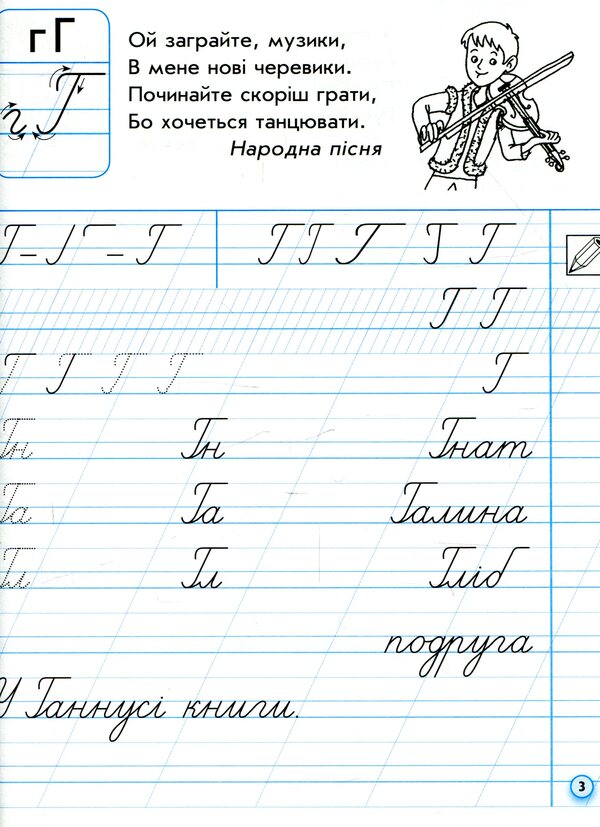 гГ
г Г
Ой заграйте, музики,
В мене нові черевики.
Починайте скоріш грати,
Бо хочеться танцювати.
Народна пісня
Г Г Г Г Г Г
Г Г
Г Г Г Г Г
Гн Гн Гнат
Га Га Галина
Гл Гл Гліб
подруга
У Ганнусі книги.
3